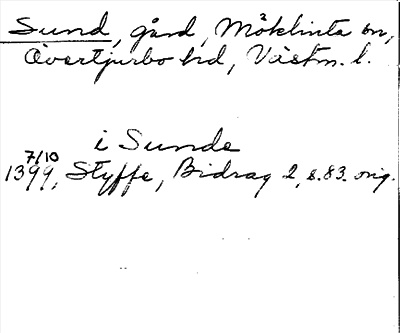 Sund, gård, Möklinta sn,
Övertjurbo hd, Västm. l.
i Sunde
7/10
1399, Styffe, Bidrag 2, s. 83. orig.